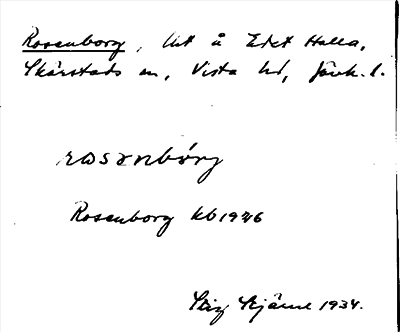 Rosenborg, Ut å Edet Halla,
Skärstads sn, Vista hd, Jönk. l.
rɷsɤnbórj
Rosenborg kb 1946
Stig Stjärne 1934.